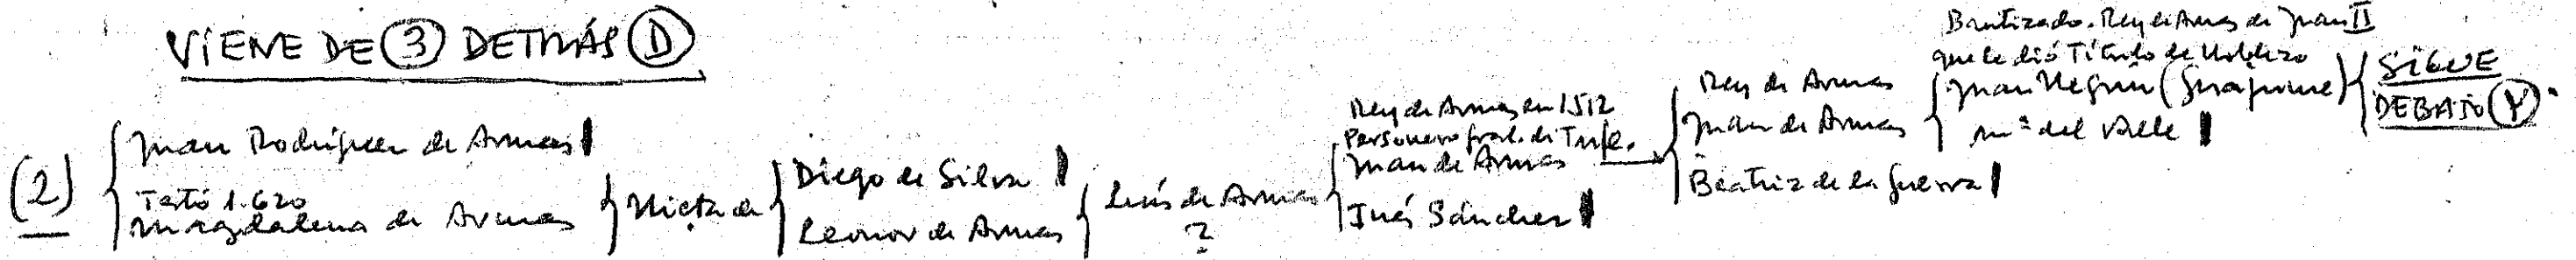 VIENE DE (3) DETRÁS (D)
(2)
Juan Rodríguez de Armas
Testó 1.620
Magdalena de Armas
Nieta de
Diego de Silva
Leonor de Armas
Luís de Armas
?
Rey de Armas en 1512
Personero gral. de Tnfe.
Juan de Armas
Inés Sánchez
Rey de Armas
Juan de Armas
Beatriz de la Guerra
Bautizado. Rey de Armas de Juan II
que le dió Título de Nobleza
Juan Negrín (Guapime)
Mª del Valle
SIGUE
DEBAJO (Y).